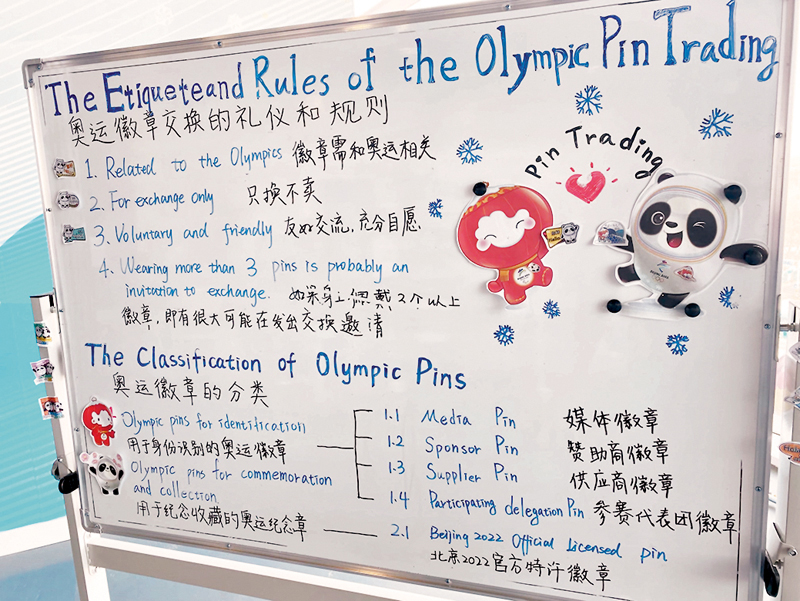 The Etiqueteand Rules of the Olympic Pin Trading
奥运徽章交换的礼仪和规则
1. Related to the Olympics 徽章需和奥运相关
2. For exchange only 只换不卖
3. Voluntary and friendly 友好交流,充分自愿
4. Wearing more than 3 pins is probably an
invitation to exchange. 如果身上佩戴3个以上
徽章,即有很大可能在发出交换邀请
Pin Trading
The Classification of Olympic Pins
奥运徽章的分类
Olympic pins for identification
用于身份识别的奥运徽章
Olympic pins for commemoration
and collection
用于纪念收藏的奥运纪念章
1.1 Media Pin 媒体徽章
1.2 Sponsor Pin 赞助商徽章
1.3 Supplier Pin 供应商徽章
1.4 Participating delegation Pin 参赛代表团徽章
2.1 Beijing 2022 Official Licensed pin
北京2022官方特许徽章